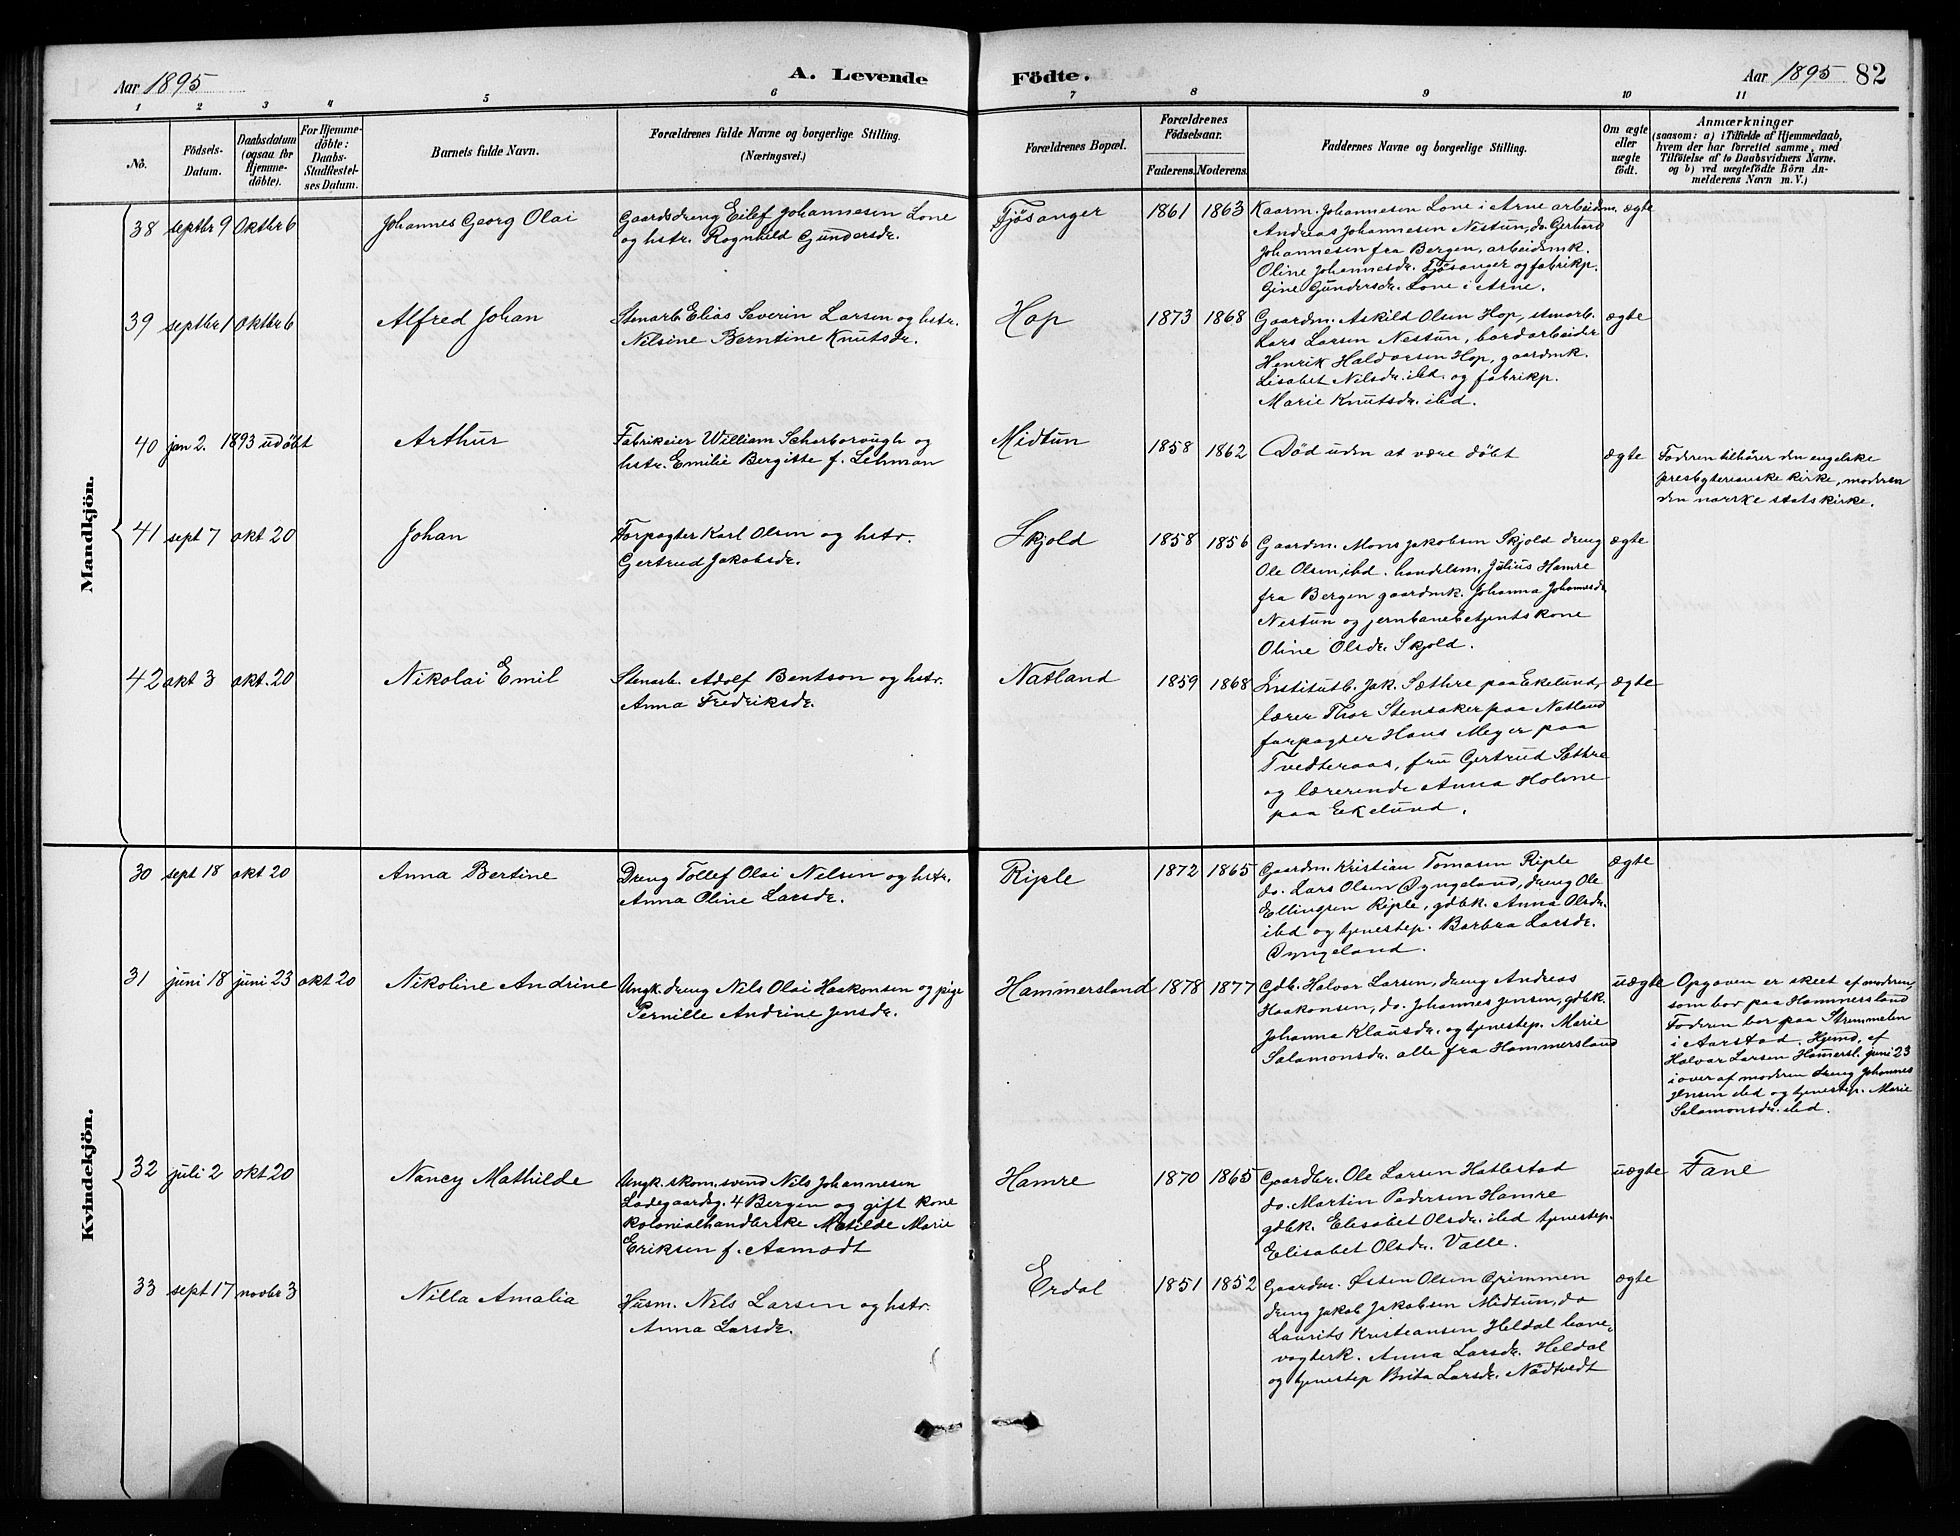 Aar 1895
A. Levende
Födte.
Aar 1895 82
1 2 3 4 5 6 7 8 9 10 11
No.
Födsels-
Datum.
Daabsdatum
(ogsaa for
Hjemme-
döbte).
For Hjemme-
döbte:
Daabs-
Stadfæstel-
ses Datum.
Barnets fulde Navn.
Forældrenes fulde Navne og borgerlige Stilling.
(Næringsvei.)
Forældrenes Bopæl.
Forældrenes
Födselsaar.
Faderens. Moderens.
Faddernes Navne og borgerlige Stilling.
Om ægte
eller
uægte
födt.
Anmærkninger
(saasom: a) i Tilfælde af Hjemmedaab,
hvem der har forrettet samme, med
Tilföielse af to Daabsvidners Navne,
og b) ved uægtefödte Börn An-
melderens Navn m. V.)
Mandkjön.
38 septbr 9 Oktbr 6
Johannes Georg Olai
Gaardsdreng Eilef Johannesen Lone
og hstr. Rognhild Gundersdr.
Fjösanger
1861 1863
Kaarm. Johannesen Lone i Arne arbeidsm.
Andreas Johannesen Nestun, do. Gerhard
Johannesen fra Bergen, arbeidsmk.
Oline Johannesdr. Fjösanger og fabrikp.
Gine Gundersdr. Lone i Arne.
ægte
39 septbr 1 Oktbr 6
Alfred Johan
Stenarb. Elias Severin Larsen og hstr.
Nilsine Berntine Knutsdr.
Hop
1873 1868
Gaardm. Askild Olsen Hop, stenarb.
Lars Larsen Nestun, bordarbeider
Henrik Haldorsen Hop, gaardmk.
Lisabet Nilsdr. ibd. og fabrikp.
Marie Knutsdr. ibd.
ægte
40 jan 2. 1893 udöbt
Arthur
Fabrikeier William Scharborough og
hstr. Emilie Bergitte f. Lehman
Midtun
1858 1862
Död uden at være döbt
ægte
Faderen tilhörer den engelske
presbyterianske kirke, moderen
den norske statskirke.
41 sept 7 okt 20
Johan
Forpagter Karl Olsen og hstr.
Gertrud Jakobsdr.
Skjold
1858 1856
Gaardm. Mons Jakobsen Skjold dreng
Ole Olsen, ibd. handelsm. Julius Hamre
fra Bergen gaardmk. Johanna Johannesdr.
Nestun og jernbanebetjentskone
Oline Olsdr. Skjold.
ægte
42 okt 3 okt. 20
Nikolai Emil
Stenarb. Adolf Bentson og hstr.
Anna Fredriksdr.
Natland
1859 1868
Institutb. Jak. Sæthre paa Ekelund,
lærer Thor Stensaker paa Natland
forpagter Hans Meyer paa
Tvedteraas, fru Gertrud Sæthre
og lærerinde Anna Holme
paa Ekelund.
ægte
Kvindekjön.
30 sept 18 okt 20
Anna Bertine
Dreng Tollef Olai Nilsen og hstr.
Anna Oline Larsdr.
Riple
1872 1865
Gaardm. Kristian Tomasen Riple
do. Lars Olsen Dyngeland, dreng Ole
Ellingsen Riple, gdbk. Anna Olsdr.
ibd og tjenestep. Barbra Larsdr.
Dyngeland.
ægte
31 juni 18 juni 23 okt 20
Nikoline Andrine
Ungk. dreng Nils Olai Haakonsen og pige
Pernille Andrine Jensdr.
Hammersland
1878 1877
Gdb. Halvor Larsen, dreng Andreas
Haakonsen, do. Johannes Jensen, gdbk.
Johanna Klausdr. og tjenestep. Marie
Salamonsdr. alle fra Hammersland
uægte
Opgaven er skeet af moderen,
som bor paa Hammersland
Faderen bor paa Strømmelen
i Aarstad. Hjemd. af
Halvor Larsen Hamersl. juni 23
i over af moderen dreng Johannes
Jensen ibd og tjenestep. Marie
Salamonsdr. ibd.
32 juli 2 okt 20
Nancy Mathilde
Ungk. skom. svend Nils Johannesen
Ladegaardsg. 4 Bergen og gift kone
kolonialhandlerske Matilde Marie
Eriksen f. Aamodt
Hamre
1870 1865
Gaardbr. Ole Larsen Hatlestad
do. Martin Pedersen Hamre
gdbk. Elisabet Olsdr. ibd tjenestep.
Elisabet Olsdr. Valle.
uægte
Fane
33 sept 17 novbr 3
Nilla Amalia
Husm. Nils Larsen og hstr.
Anna Larsdr.
Erdal
1851 1852
Gaardm. Østen Olsen Grimmen
dreng Jakob Jakobsen Midtun, do
Laurits Kristeansen Heldal bane-
vogterk. Anna Larsdr. Heldal
og tjenestep Brita Larsdr. Nödtvedt
ægte